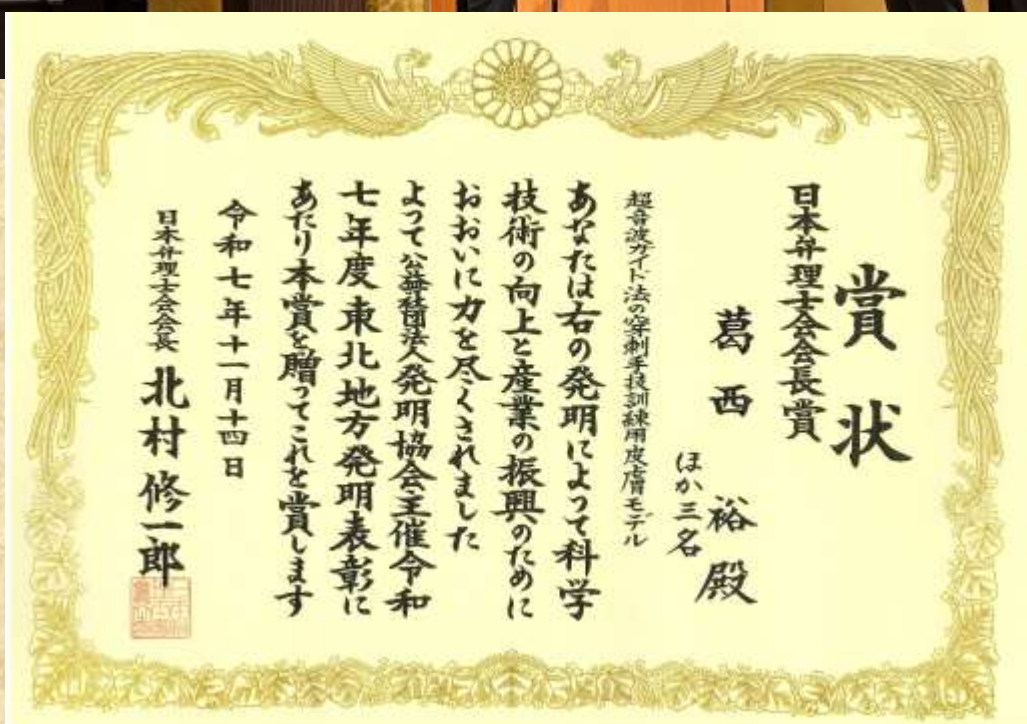 賞状
日本弁理士会会長賞
葛西 裕 殿
ほか三名
超音波ガイド法の穿刺手技訓練用皮膚モデル
あなたは右の発明によって科学
技術の向上と産業の振興のために
おおいに力を尽くされました
よって公益社団法人発明協会主催令和
七年度東北地方発明表彰に
あたり本賞を贈ってこれを賞します
令和七年十一月十四日
日本弁理士会会長 北村修一郎